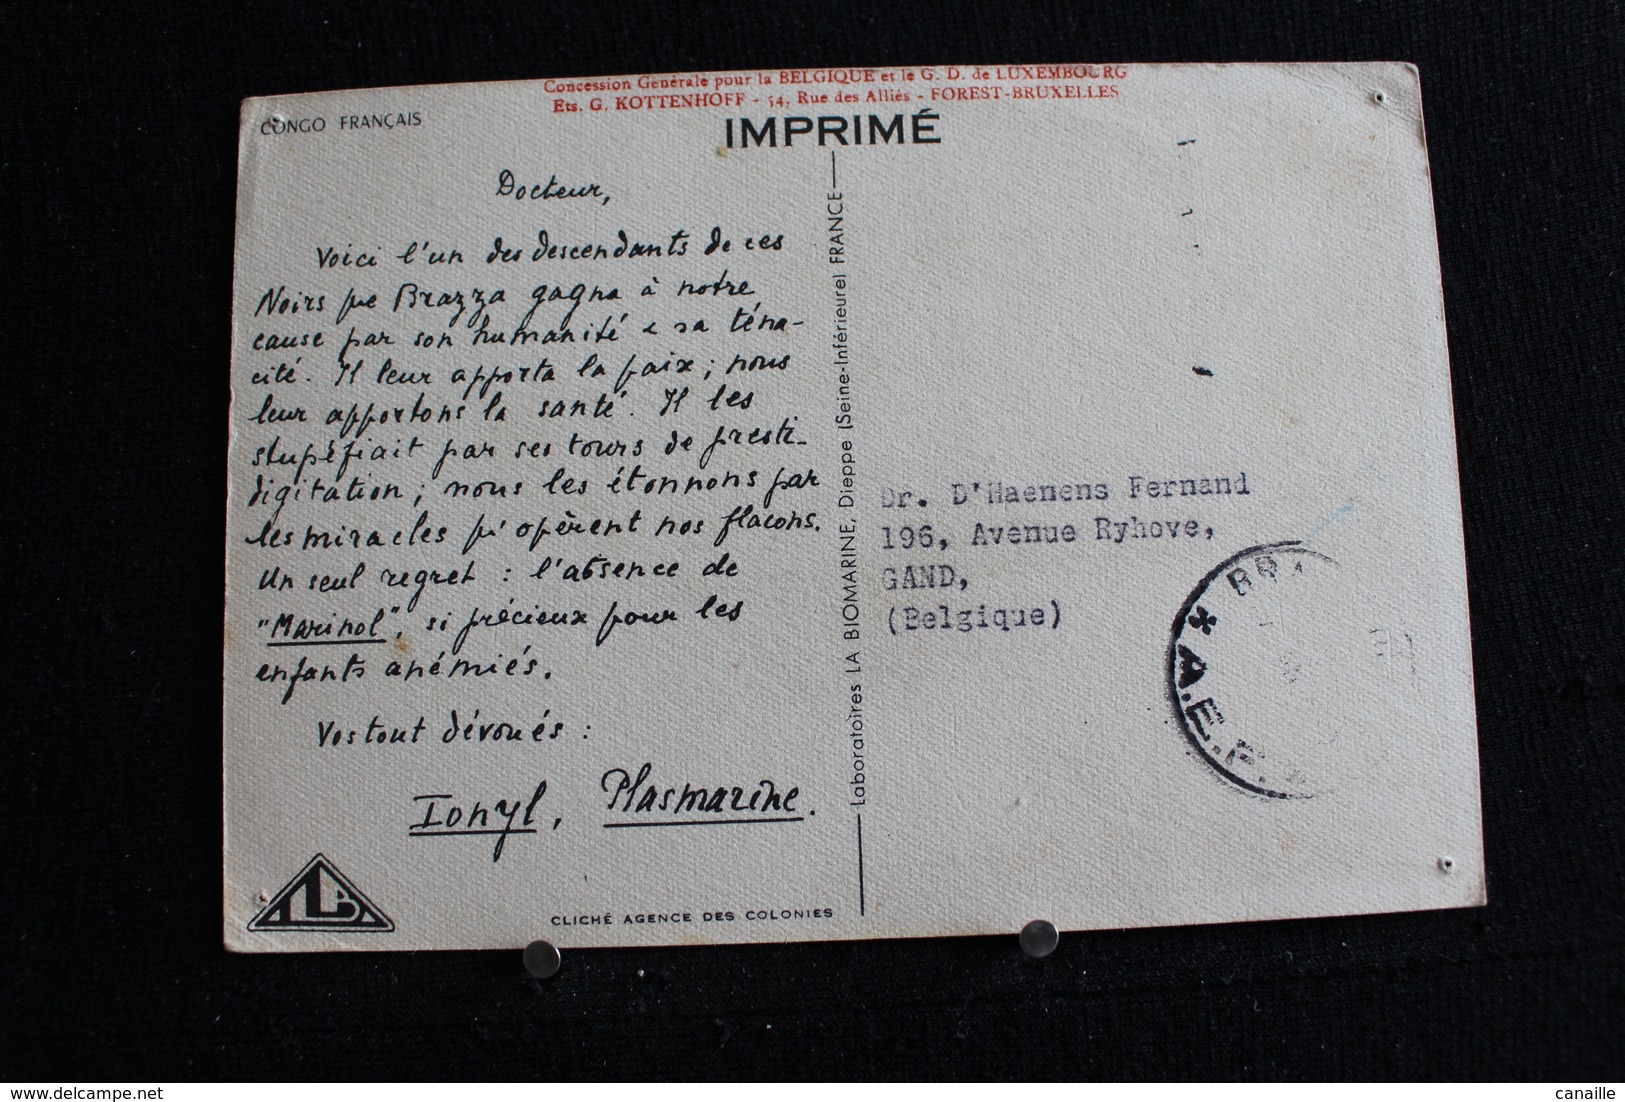 Concession Générale pour la BELGIQUE et le G. D. de LUXEMBOURG
Ets. G. KOTTENHOFF - 54, Rue des Alliés - FOREST-BRUXELLES
CONGO FRANÇAIS
IMPRIMÉ
Docteur,
Voici l'un des descendants de ces
Noirs que Brazza gagna à notre
cause par son humanité & sa téna-
cité. Il leur apporta la paix ; nous
leur apportons la santé. Il les
stupéfiait par ses tours de presti-
digitation ; nous les étonnons par
les miracles qu'opèrent nos flacons.
Un seul regret : l'absence de
"Marinol", si précieux pour les
enfants anémiés.
Vos tout dévoués :
Ionyl, Plasmarine.
CLICHÉ AGENCE DES COLONIES
Laboratoires LA BIOMARINE, Dieppe (Seine-Inférieure) FRANCE
Dr. D'Haenens Fernand
196, Avenue Ryhove,
GAND,
(Belgique)
* A.E.F.
canaille